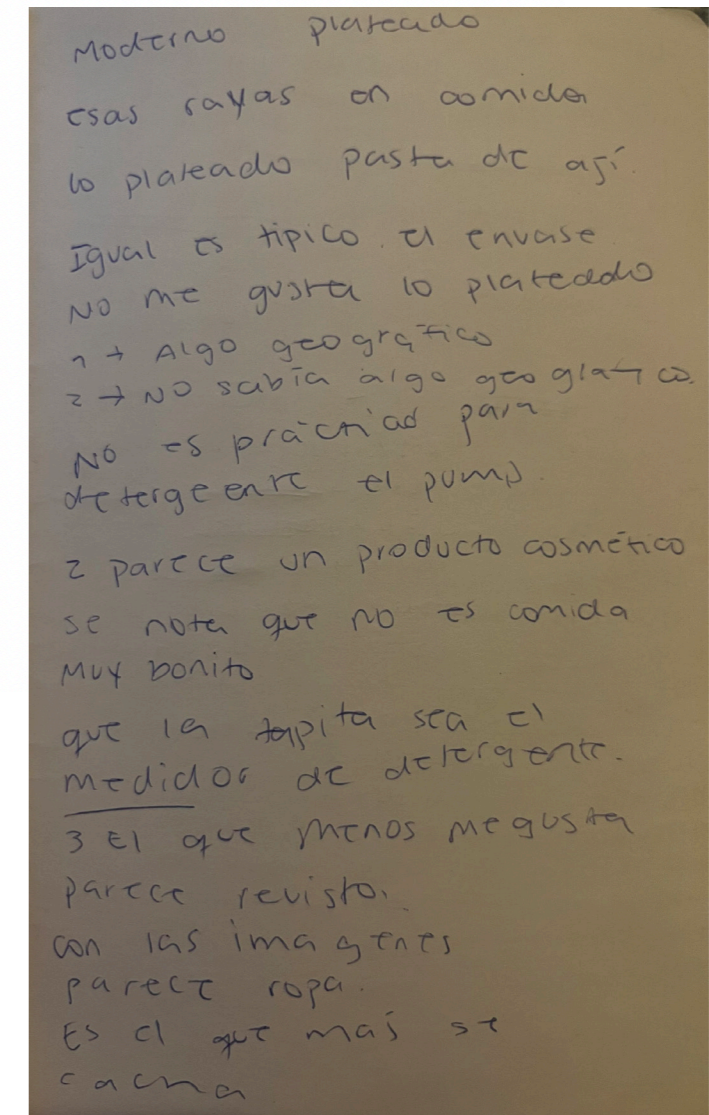 Moderno plateado
esas rayas en comida
lo plateado pasta de ají.
Igual es tipico el envase
No me gusta lo plateado
1 → Algo geográfico
2 → No sabía algo geografico.
No es práctico para
detergeente el pump.
2 parece un producto cosmético
se nota que no es comida
Muy bonito
que la tapita sea el
medidor de detergente.
3 El que menos me gusta
parece revista.
con las imagenes
parece ropa.
Es el que mas se
cacha